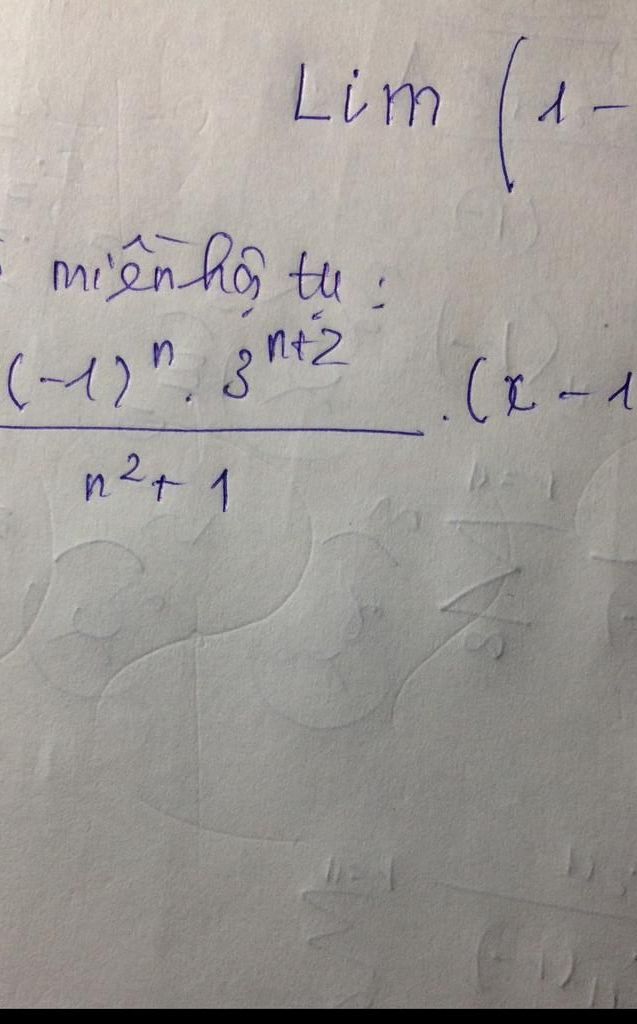 Lim (1 -
miền hội tụ :
(-1)^n . 3^{n+2} / n^2 + 1 . (x - 1